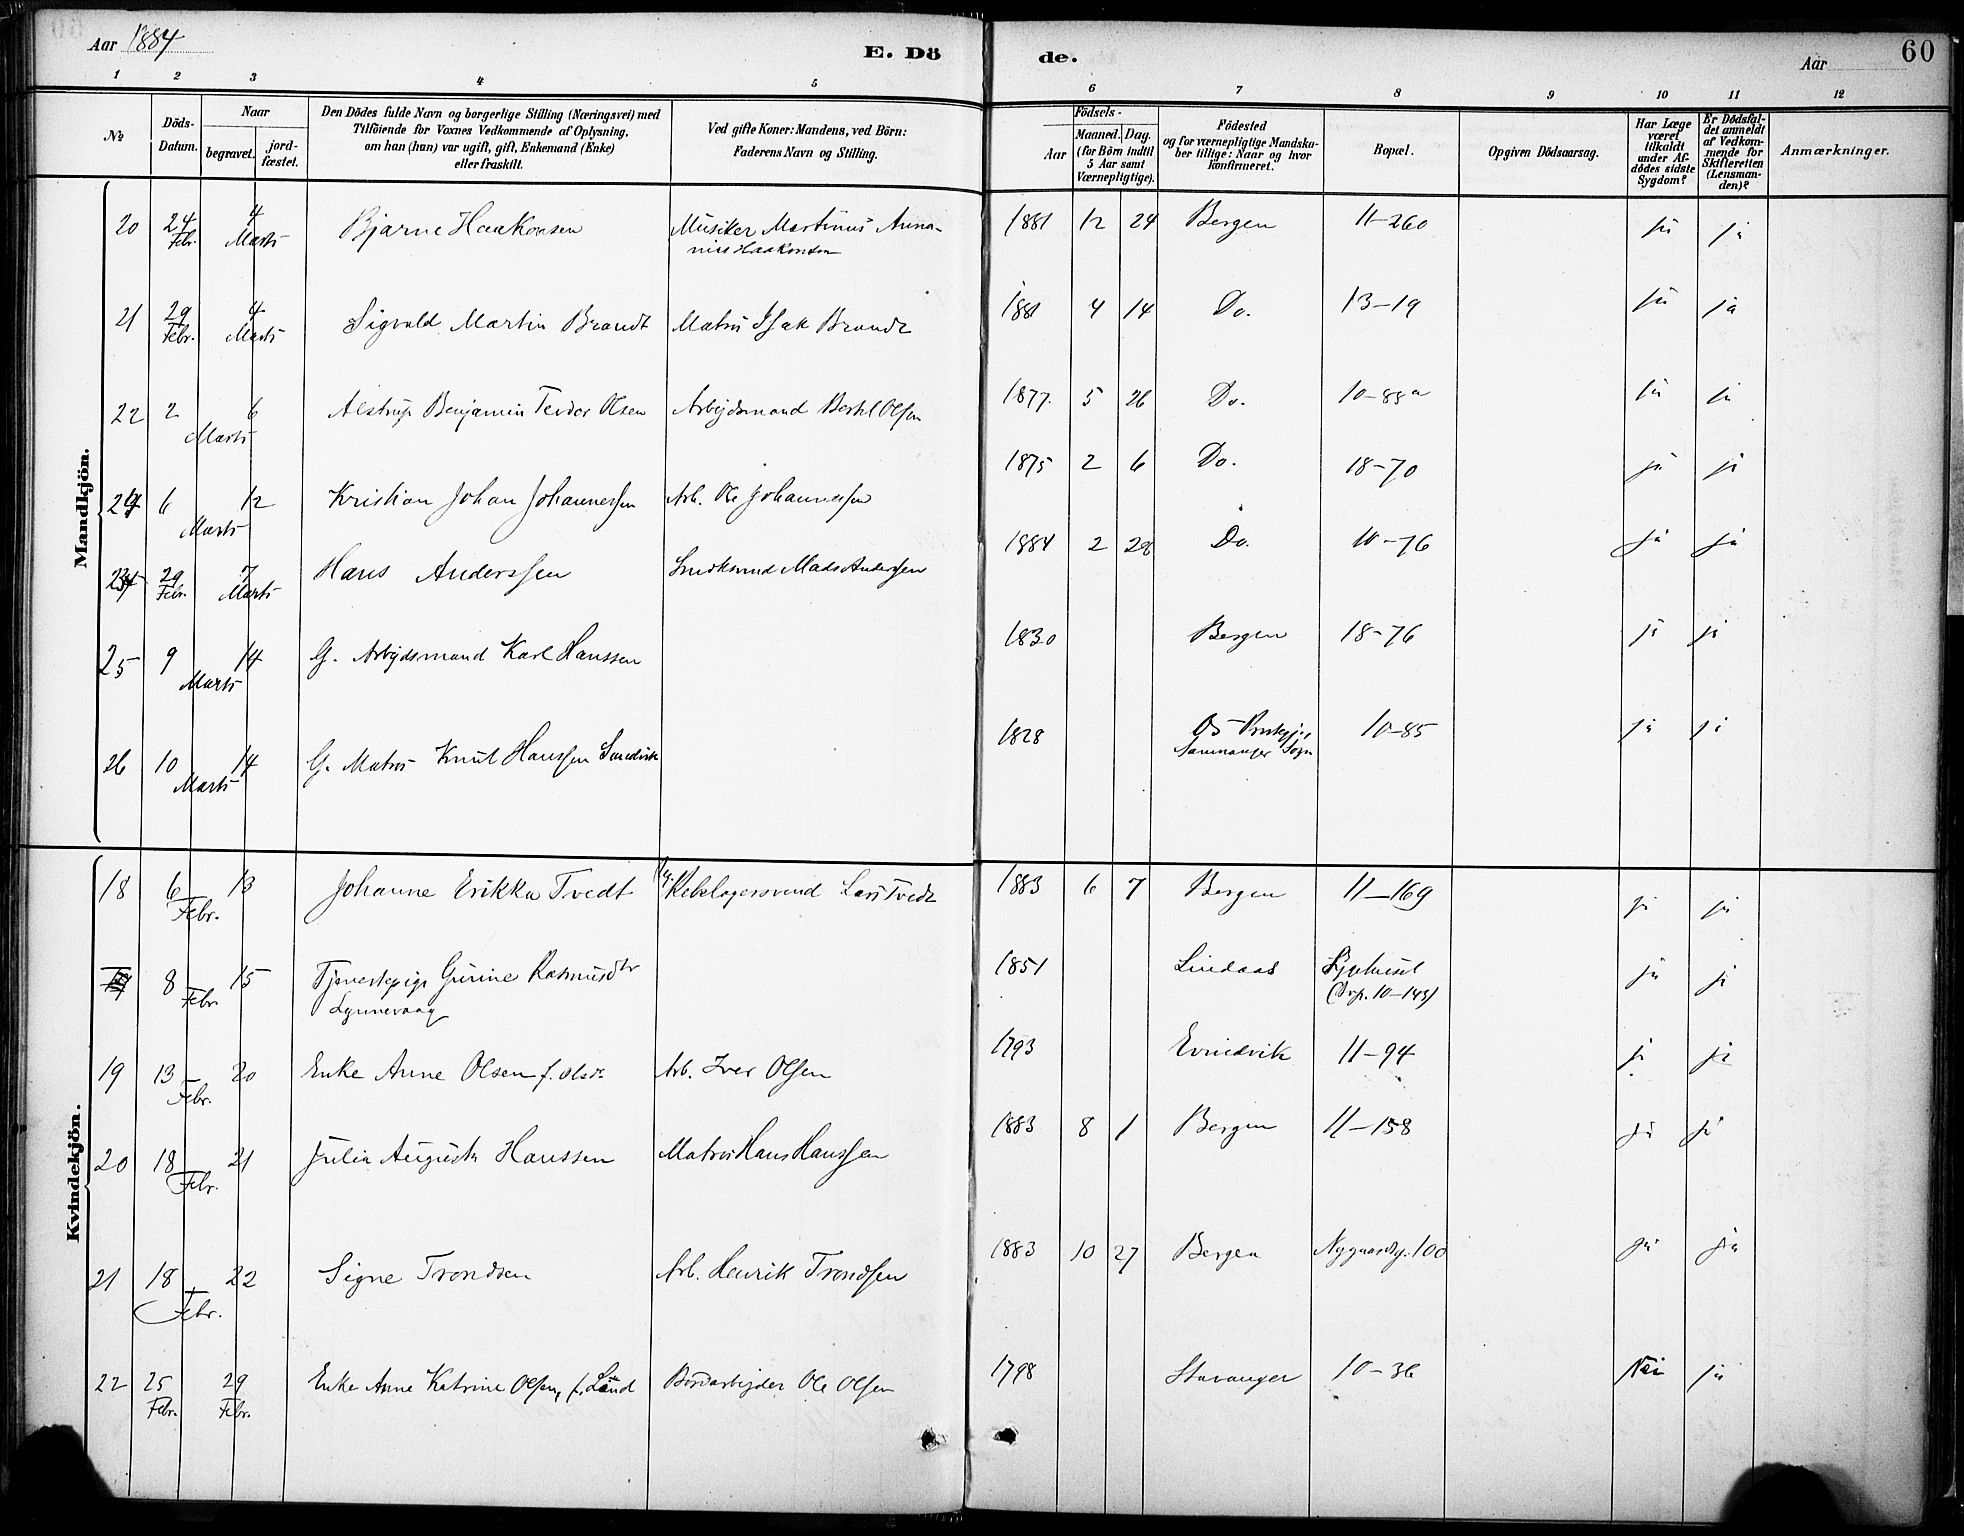 Aar 1884
E. Dö
de.
Aar
60
1 2 3 4 5 6 7 8 9 10 11 12
No
Döds-
Datum.
Naar
begravet.
jord-
fæstet.
Den Dödes fulde Navn og borgerlige Stilling (Næringsvei) med
Tilföiende for Voxnes Vedkommende af Oplysning,
om han (hun) var ugift, gift, Enkemand (Enke)
eller fraskilt.
Ved gifte Koner: Mandens, ved Börn:
Faderens Navn og Stilling.
Födsels-
Aar
Maaned. Dag.
(for Börn indtil
5 Aar samt
Værnepligtige).
Födested
og for værnepligtige Mandska-
ber tillige: Naar og hvor
konfirmeret.
Bopæl.
Opgiven Dödsaarsag.
Har Læge
været
tilkaldt
under Af-
dödes sidste
Sygdom?
Er Dödsfal-
det anmeldt
af Vedkom-
mende for
Skifteretten
(Lensman-
den)?
Anmærkninger.
Mandkjön.
20 24 Febr. 4 Marts Bjarne Haakonsen Musiker Martinus Anna-
nias Haakonsen 1881 12 24 Bergen 11-260 ja ja
21 29 Febr. 4 Marts Sigvald Martin Brandt Matros Isak Brandt 1881 4 14 Do. 13-19 ja ja
22 2 6 Marts Alstrup Benjamin Teodor Olsen Arbejdsmand Bertel Olsen 1877 5 26 Do. 10-85a ja ja
24 6 12 Marts Kristian Johan Johannessen Arb. Ole Johannessen 1875 2 6 Do. 18-70 ja ja
23 29 Febr. 7 Marts Hans Anderssen Mads Anderssen 1884 2 28 Do. 10-76 ja ja
25 9 14 Marts G. Arbejdsmand Karl Hanssen 1830 Bergen 18-76 ja ja
26 10 14 Marts G. Matros Knut Hanssen Sandvik 1828 Os
Samnanger Sogn 10-85 ja ja
Kvindekjön.
18 6 13 Febr. Johanne Erikka Tvedt Rebslagersvend Lars Tvedt 1883 6 7 Bergen 11-169 ja ja
8 15 Febr Tjenestepige Gurine Rasmusdtr
Lynnevaag 1851 Lindaas Sygehuset
(Svp. 10-143) ja ja
19 13 20 Febr. Enke Anne Olsen f. Olsdr. Arb. Iver Olsen 1793 Evindvik 11-94 ja ja
20 18 21 Febr. Julia Augusta Hanssen Matros Hans Hanssen 1883 8 1 Bergen 11-158 ja ja
21 18 22 Febr. Signe Trondsen Arb. Henrik Trondsen 1883 10 27 Bergen Nygaardsg. 100 ja ja
22 25 Febr. 29 Febr. Enke Anne Katrine Olsen, f. Lund Bordarbejder Ole Olsen 1798 Stavanger 10-36 Nei ja